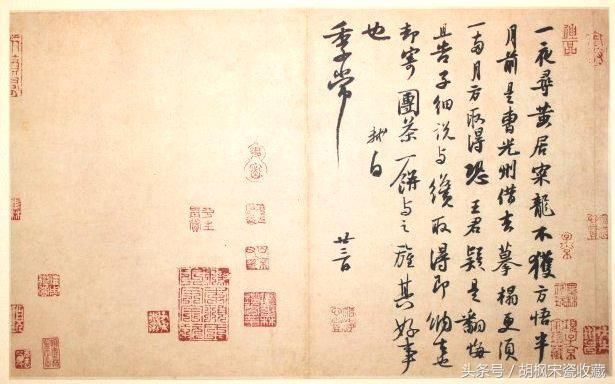 一夜尋黃居寀龍不獲方悟半
月前是曹光州借去摹搨更須
一兩月方取得恐王君疑是翻悔
且告子細說與纔取得即納去也
却寄團茶一餅與之旌其好事
也 軾白
季常
廿三日
头条号 / 胡枫宋瓷收藏